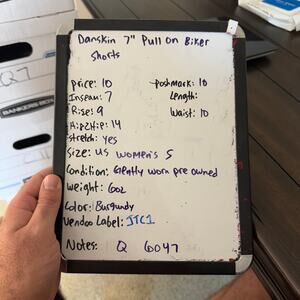 Danskin 7" Pull On Biker
Shorts
price: 10
poshmark: 10
Inseam: 7
Length:
Rise: 9
Waist: 10
Hip2Hip: 14
stretch: yes
Size: US women's S
Condition: Gently worn pre owned
Weight: 6oz
Color: Burgundy
Vendoo Label: JTC1
Notes: Q 6047
Q7
BANKERS BOX